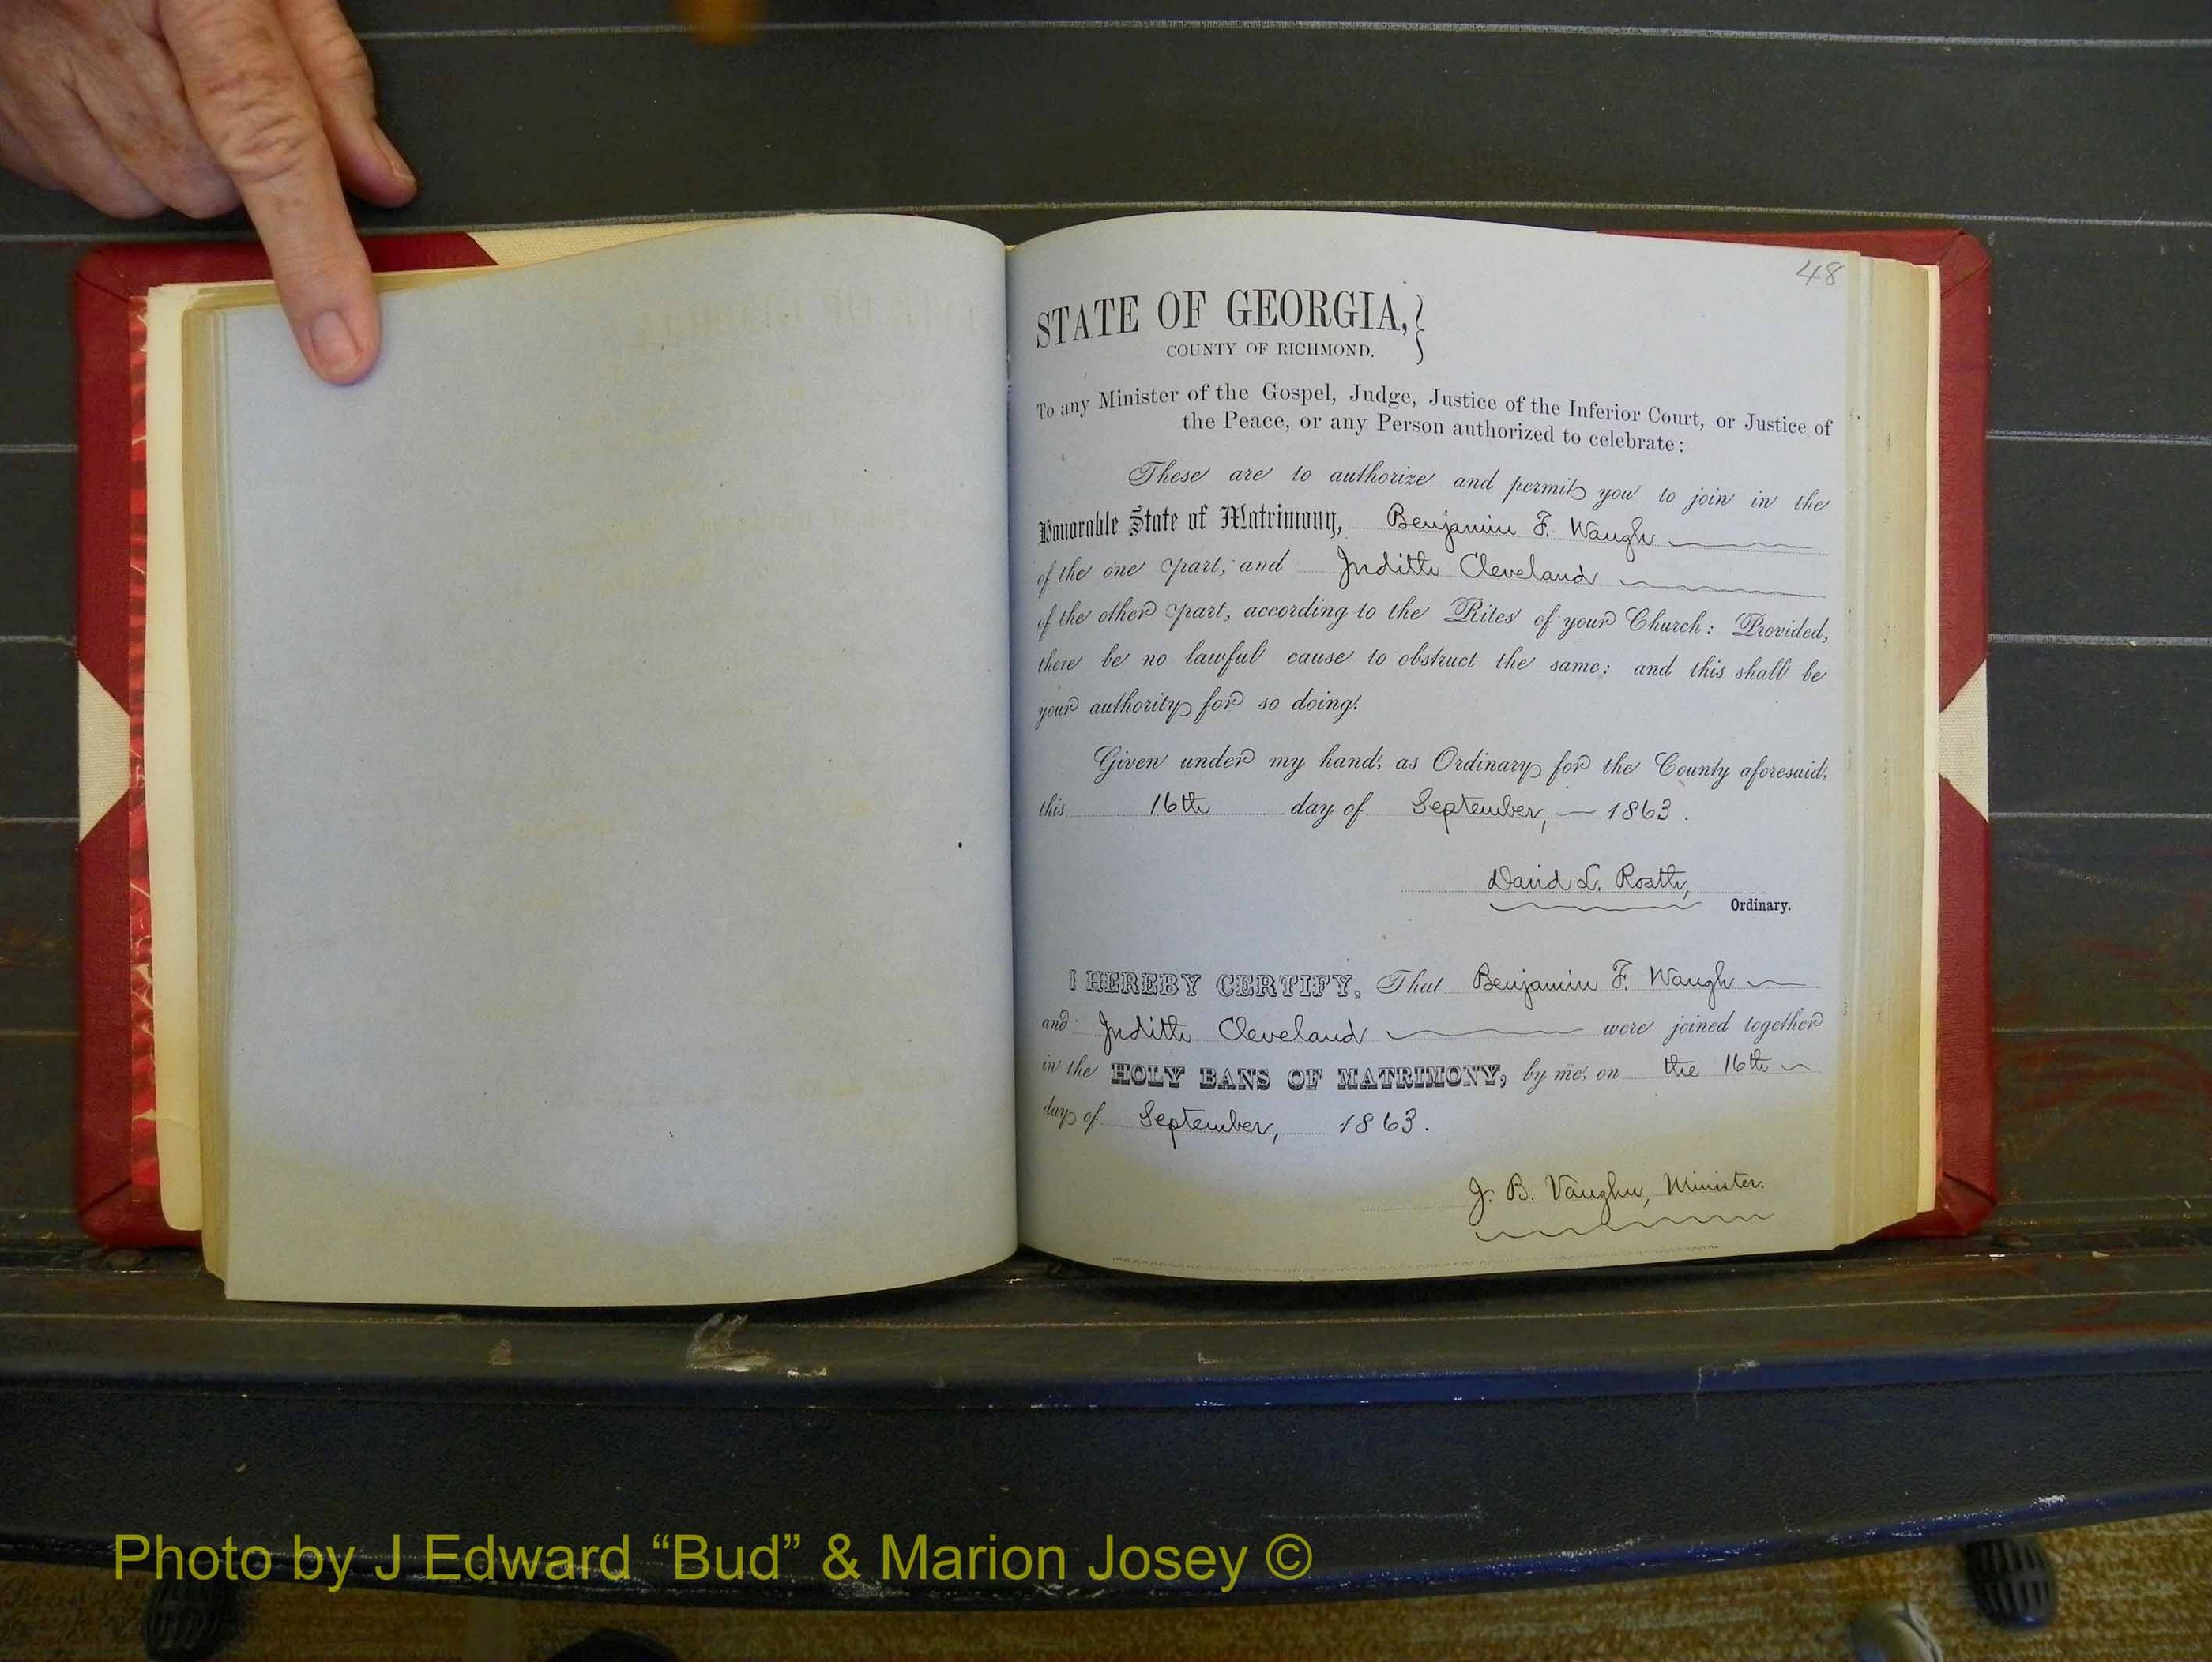 48
STATE OF GEORGIA,
COUNTY OF RICHMOND.
To any Minister of the Gospel, Judge, Justice of the Inferior Court, or Justice of
the Peace, or any Person authorized to celebrate:
These are to authorize and permit you to join in the
Honorable State of Matrimony, Benjamin F. Waugh
of the one part, and Judith Cleveland
of the other part, according to the Rites of your Church: Provided,
there be no lawful cause to obstruct the same: and this shall be
your authority for so doing.
Given under my hand, as Ordinary for the County aforesaid,
this 16th day of September, 1863.
David L. Roath,
Ordinary.
I HEREBY CERTIFY, That Benjamin F. Waugh
and Judith Cleveland were joined together
in the HOLY BANS OF MATRIMONY, by me, on the 16th
day of September, 1863.
J. B. Vaughn, Minister.
Photo by J Edward “Bud” & Marion Josey ©